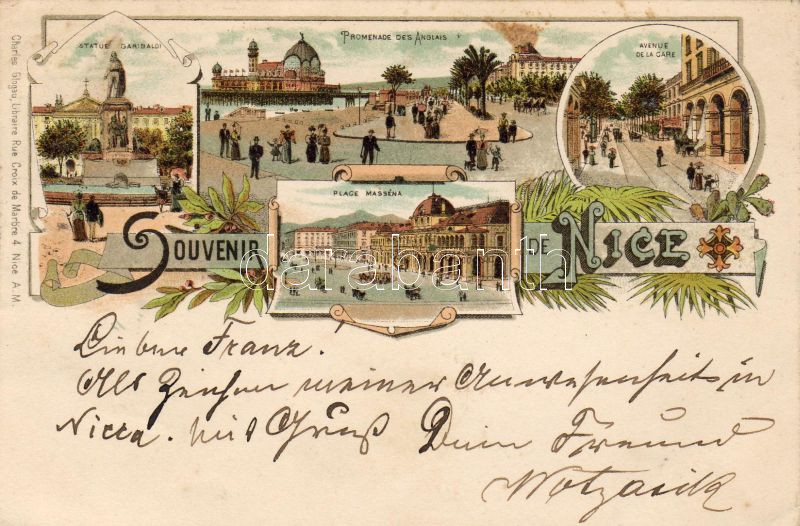 STATUE GARIBALDI
PROMENADE DES ANGLAIS
AVENUE
DE LA GARE
PLACE MASSÉNA
SOUVENIR DE NICE
darabanth
Charles Glogau, Libraire Rue Croix de Marbre 4 Nice A. M.
Lieber Franz.
Als Zeichen meiner Anwesenheit in
Nicca. mit Gruß Dein Freund